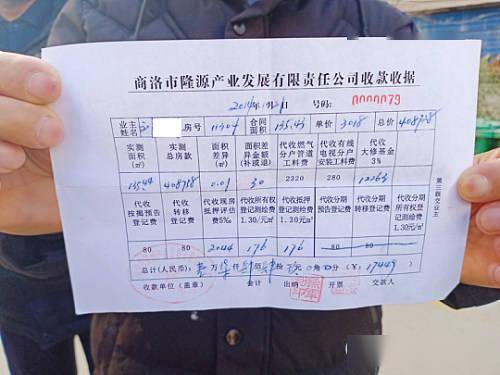 商洛市隆源产业发展有限责任公司收款收据
号码: 0000079
业主姓名 房号 11304 合同面积 135.43 单价 3018 总价 408718
实测面积(㎡) 实测总房款 面积差异(㎡) 面积差异金额(补或退) 代收燃气分户管道工料费 代收有线电视分户安装工料费 代收大修基金3%
135.44 408718 0.01 30 2220 280 12263
代收按揭预告登记费 代收转移登记费 代收现房抵押评估费5‰ 代收所有权登记测绘费1.30/元㎡ 代收抵押登记测绘费1.30/元㎡ 代收分期预告登记费 代收分期转移登记费 代收分期所有权登记测绘费1.30/元㎡
80 80 2044 176 176 80 80
总计(人民币): 万 仟 佰 拾 元 角 分 (¥: 17449)
收款单位(盖章) 会计 出纳 开票 交款人
第三联交业主